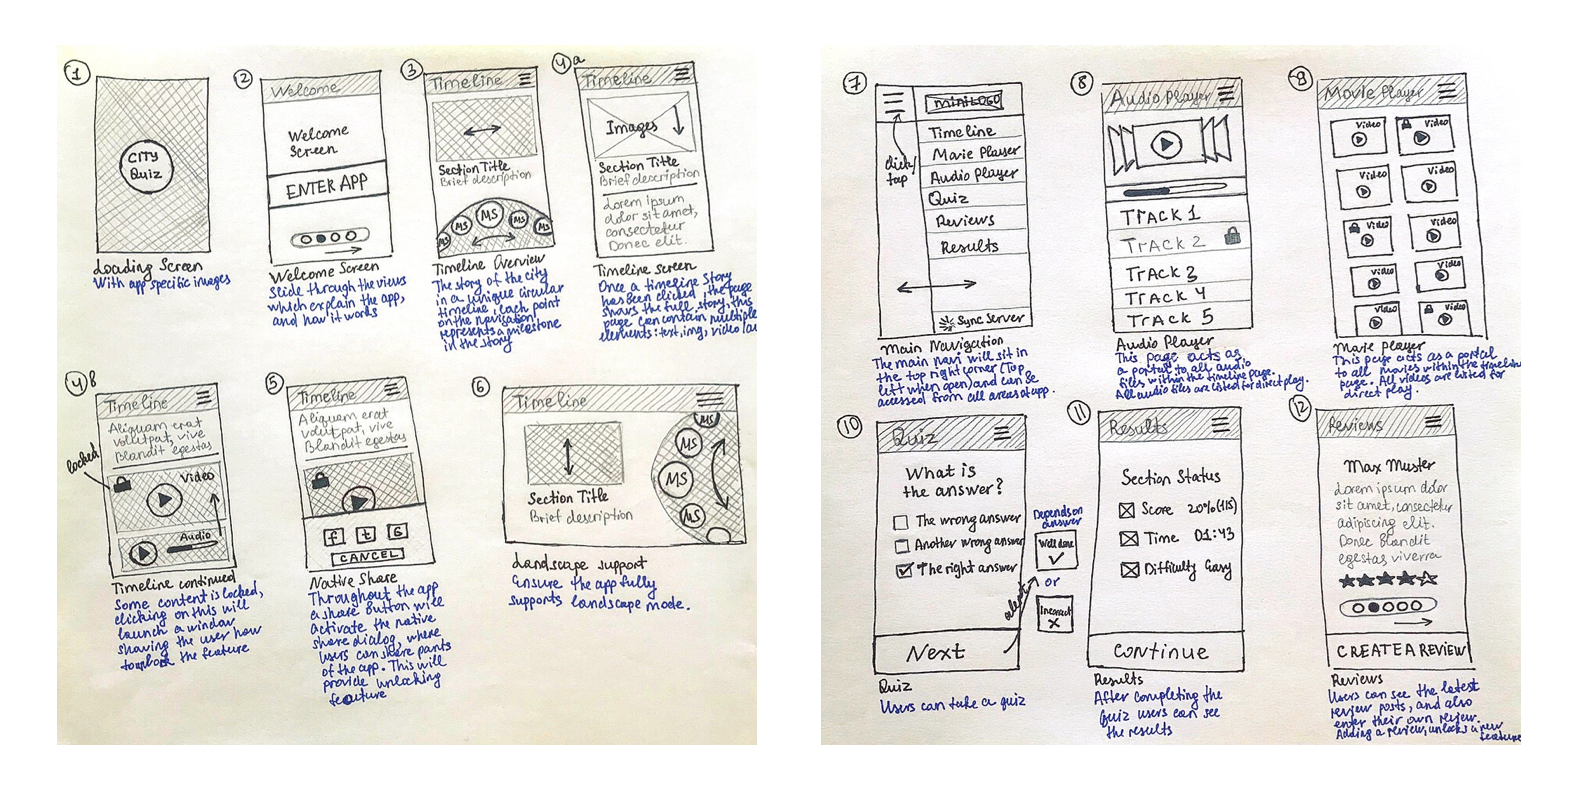 1
CITY
Quiz
Loading Screen
With app specific images
2
Welcome
Welcome
Screen
ENTER APP
Welcome Screen
Slide through the views
which explain the app,
and how it works
3
Timeline
Section Title
Brief description
MS
MS
MS
MS
MS
Timeline Overview
The story of the city
in a unique circular
timeline, each point
on the navigation
represents a milestone
in the story
4a
Timeline
Images
Section Title
Brief description
Lorem ipsum
dolor sit amet,
consectetur
Donec elit.
Timeline screen
Once a timeline story
has been clicked, the page
shows the full story, this
page can contain multiple
elements: text, img, video
4B
Timeline
Aliquam erat
volutpat, vive
Blandit egestas
locked
Video
Audio
Timeline continued
Some content is locked,
clicking on this will
launch a window
showing the user how
the feature
5
Timeline
Aliquam erat
volutpat, vive
Blandit egestas
f t G
CANCEL
Native Share
Throughout the app
a share button will
activate the native
share dialog, where
users can share parts
of the app. This will
provide unlocking
feature
6
Timeline
MS
MS
MS
MS
Section Title
Brief description
Landscape support
Ensure the app fully
supports landscape mode.
7
mini LOGO
click/
tap
Timeline
Movie Player
Audio Player
Quiz
Reviews
Results
Sync Server
Main Navigation
The main navi will sit in
the top right corner (Top
left when open) and can be
accessed from all areas of app.
8
Audio player
TRACK 1
TRACK 2
TRACK 3
TRACK 4
TRACK 5
Audio Player
This page acts as
a portal to all audio
files within the timeline page.
All audio files are listed for direct play.
9
Movie Player
Video
Video
Video
Video
Video
Video
Video
Video
Video
Video
Movie player
This page acts as a portal
to all movies within the timeline
page. All videos are listed for
direct play.
10
Quiz
What is
the answer?
The wrong answer
Another wrong answer
The right answer
Next
alert
Depends on
answer
Well done
or
Incorrect
X
Quiz
Users can take a quiz
11
Results
Section Status
Score 20% (1/5)
Time 01:43
Difficulty Easy
Continue
Results
After completing the
Quiz users can see
the results
12
Reviews
Max Muster
Lorem ipsum dolor
sit amet, consectetur
adipiscing elit.
Donec Blandit
egestas viverra
CREATE A REVIEW
Reviews
Users can see the latest
review posts, and also
enter their own review.
Adding a review, unlocks a new
feature